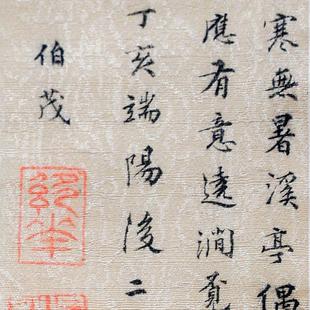 寒無暑溪亭偶
應有意遠澗覓
丁亥端陽後二
伯茂